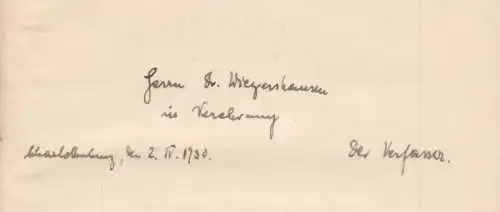 Herrn Dr. Wiegershausen
in Verehrung
Charlottenburg, den 2. IV. 1930. Der Verfasser.